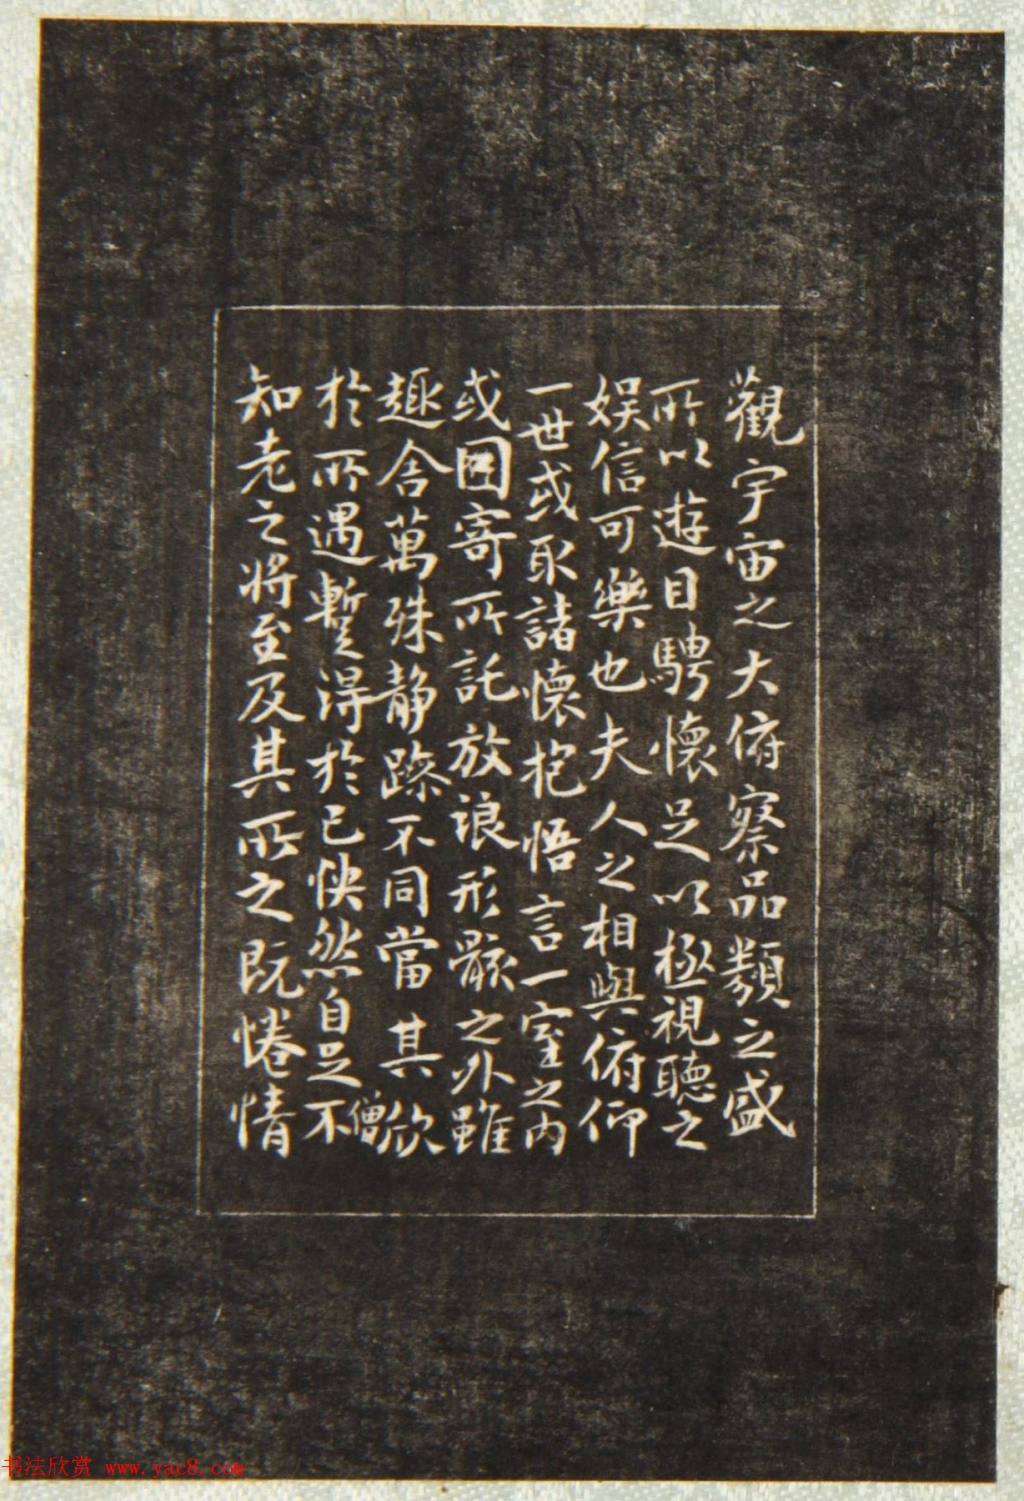 觀宇宙之大俯察品類之盛
所以遊目騁懷足以極視聽之
娛信可樂也夫人之相與俯仰
一世或取諸懷抱悟言一室之內
或因寄所託放浪形骸之外雖
趣舍萬殊静躁不同當其欣
僧
於所遇暫得於己快然自足不
知老之將至及其所之既惓情
书法欣赏 www.yac8.com